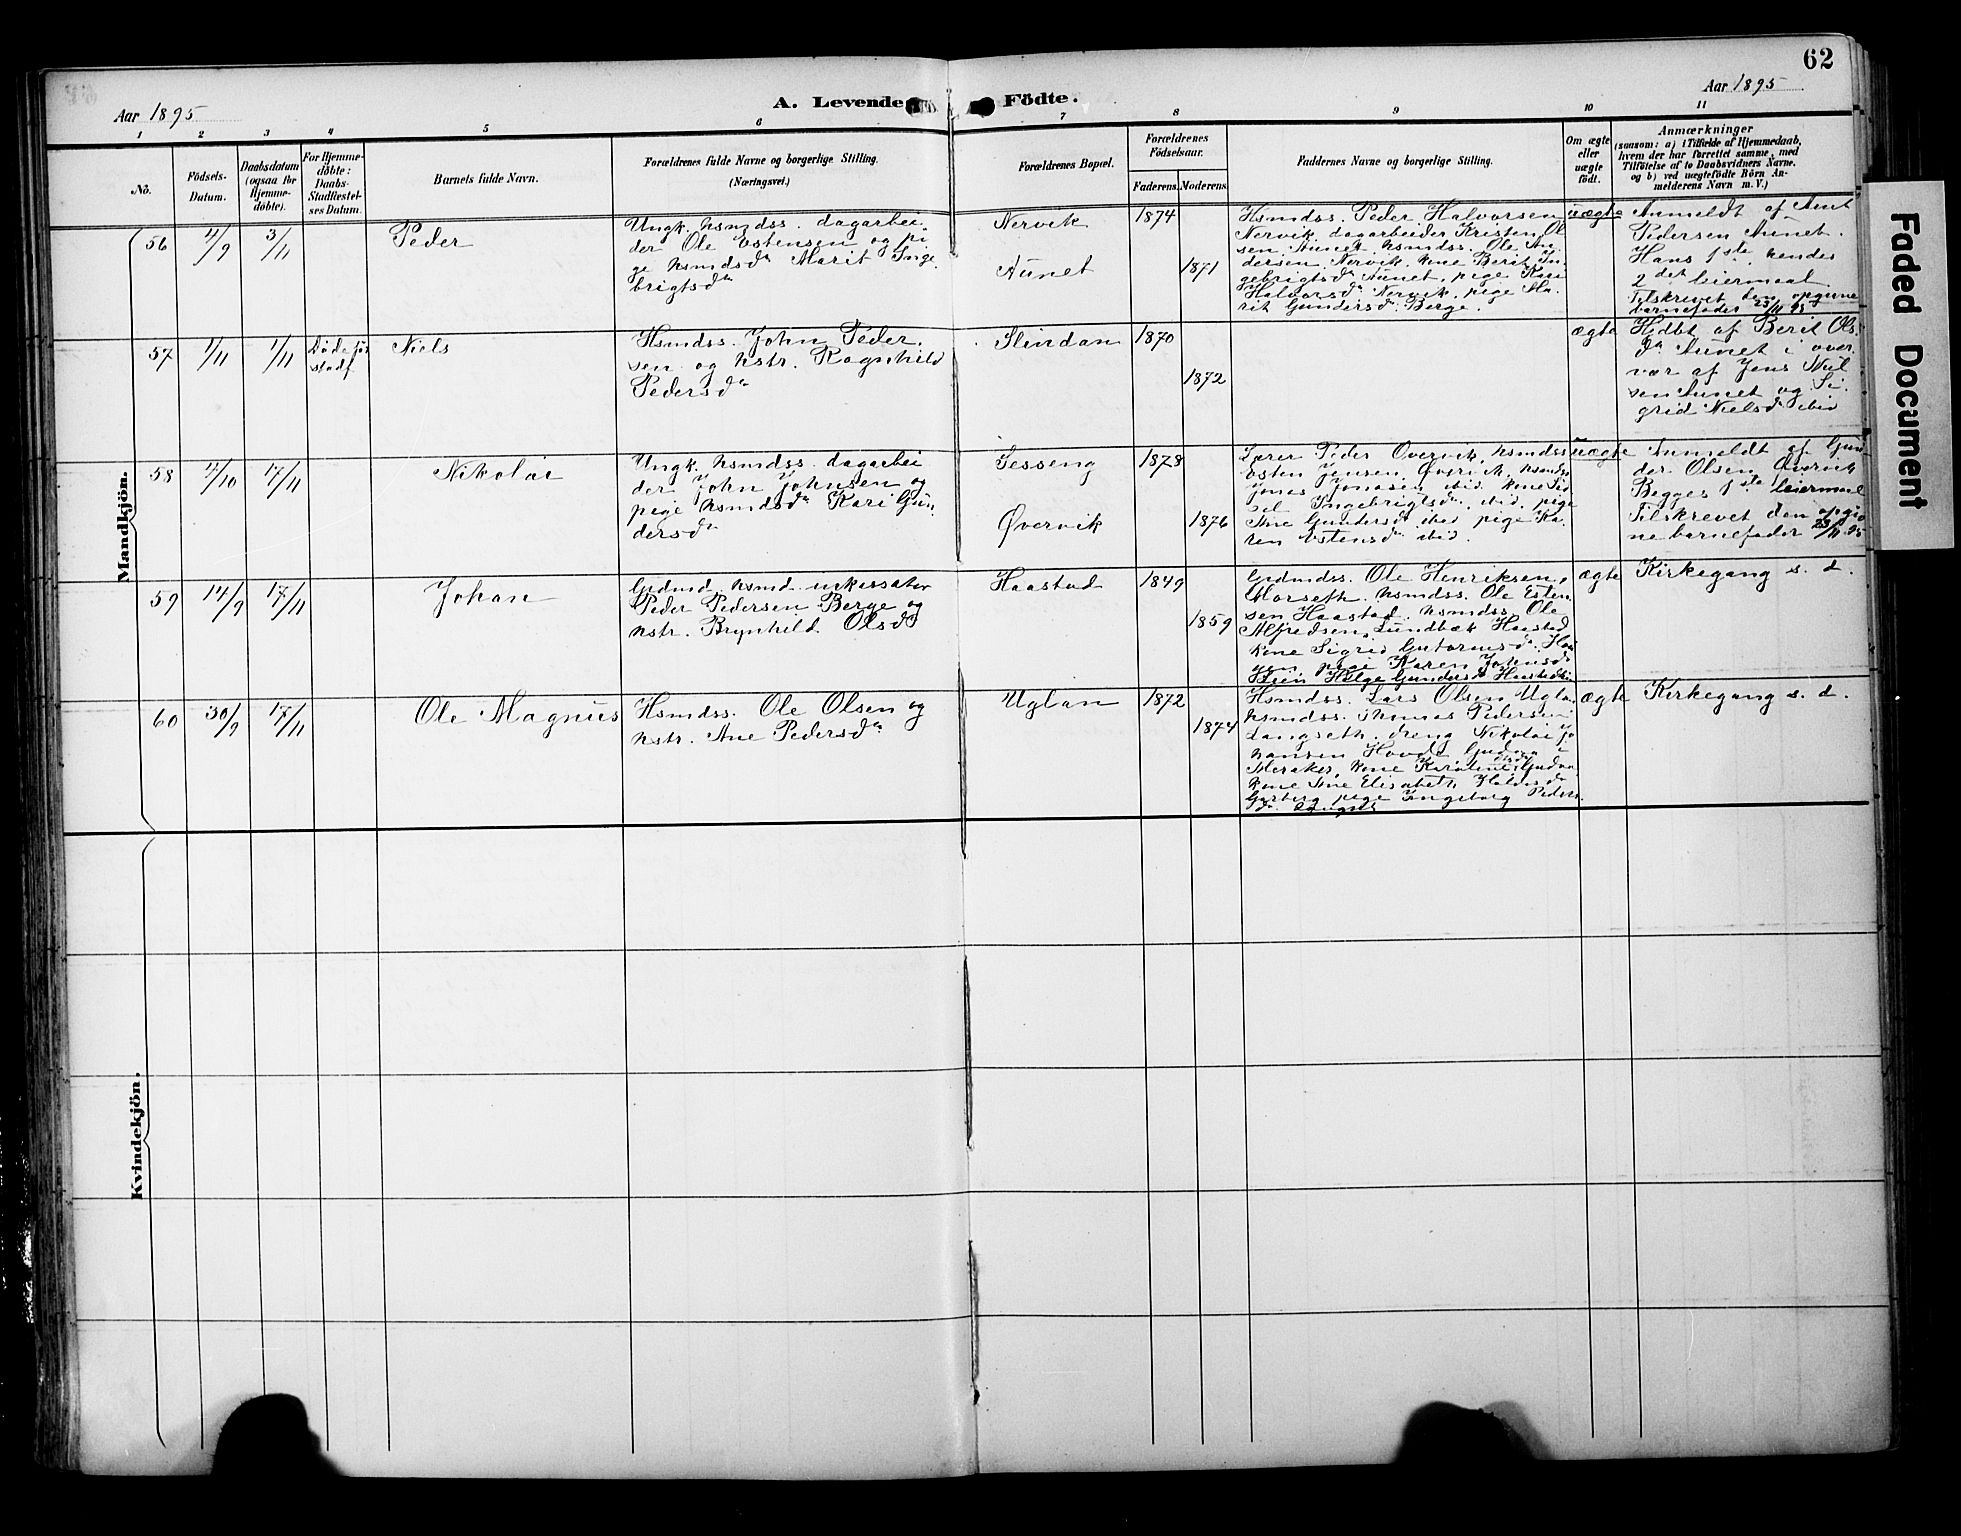 62
Aar 1895
A. Levende Födte.
Aar 1895
1 2 3 4 5 6 7 8 9 10 11
No.
Födsels-
Datum.
Daabsdatum
(ogsaa for
Hjemme-
döbte).
For Hjemme-
döbte:
Daabs-
Stadfæstel-
ses Datum.
Barnets fulde Navn.
Forældrenes fulde Navne og borgerlige Stilling.
(Næringsvei.)
Forældrenes Bopæl.
Forældrenes
Födselsaar.
Faderens. Moderens.
Faddernes Navne og borgerlige Stilling.
Om ægte
eller
uægte
födt.
Anmærkninger
(saasom: a) i Tilfælde af Hjemmedaab,
hvem der har forrettet samme, med
Tilföielse af to Daabsvidners Navne,
og b) ved uægtefödte Börn An-
melderens Navn m. V.)
Mandkjön.
56
4/9
3/11
Peder
Ungk. hsmdss. dagarbei-
der Ole Estensen og pi-
ge hsmdsdr Marit Inge-
brigtsdr
Nervik
Aunet
1874
1871
Hsmdss. Peder Halvorsen
Nervik, dagarbeider Kristen Ol-
sen Aunet, hsmdss. Ole An-
dersen Nervik, kone Berit In-
gebrigtsdr Aunet, pige Kari
Halvorsdr Nervik, pige Ma-
rit Gundersdr Berge.
uægte
Anmeldt af Arnt
Pedersen Aunet.
Hans 1ste, hendes
2det leiermaal.
Tilskrevet den opgivne
barnefader 23/11 95
57
1/11
1/11
Døde før
stadf.
Niels
Hsmdss. John Peder-
sen og hstr. Ragnhild
Pedersdr
Slindan
1870
1872
ægte
Hjdbt af Berit Ols-
dr Aunet i over-
vær af Jens Niel-
sen Aunet og Si-
grid Nielsdr ibid
58
4/10
17/11
Nikolai
Ungk. hsmdss. dagarbei-
der John Johnsen og
pige hsmdsdr Kari Gun-
dersdr
Sesseng
Øvervik
1878
1876
Lærer Peder Øvervik, hsmdss
Esten Jensen Øvervik, hsmdss
Jonas Jonasen ibid, kone Sid-
sel Ingebrigtsdr ibid, pige
Ane Gundersdr ibid, pige Ka-
ren Estensdr ibid.
uægte
Anmeldt af Gun-
der Olsen Øvervik
Begges 1ste leiermaal
Tilskrevet den opgiv-
ne barnefader 23/11 95
59
14/9
17/11
Johan
Gjdmd. hsmd. inkassator
Peder Pedersen Berge og
hstr. Brynhild Olsdr
Haastad
1849
1859
Gjdmdss. Ole Henriksen
Morseth, hsmdss. Ole Esten-
sen Haastad, hsmdss. Ole
Alfredsen Lundbæk Haastad,
kone Sigrid Gutormsdr Hau-
gen, pige Karen Johnsdr
Helge Gundersdr
ægte
Kirkegang s. d.
60
30/9
17/11
Ole Magnus
Hsmdss. Ole Olsen og
hstr. Ane Pedersdr
Uglan
1872
1874
Hsmdss. Lars Olsen Ugla,
hsmdss. Thomas Pedersen
Langseth, dreng Nikolai Jo-
hansen Hovde
Meraker, kone Karoline
kone Ane Elisabeth
pige Ingeborg Peders-
dr
ægte
Kirkegang s. d.
Kvindekjön.
Faded Document